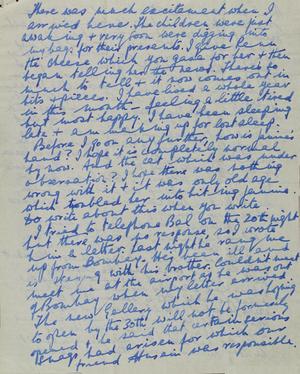 There was much excitement when I
arrived home. The children were just
awaking & very soon were digging into
my bag, for their presents. I gave Jean
the cheese which you gave for her & then
began telling her the news. There is so
much to tell & it now comes out in
bits & pieces. I have lived a whole year
in this month — feeling a little tired
but most happy. I have been sleeping
late & am making up for lost sleep.
Before I go any further, how is
hand? I hope it is completely normal
by now. And the cat which was under
observation? I hope there was nothing
wrong with it & it was only old age
which troubled her into biting
Do write about this when you write.
I tried to telephone Bal on the 20th night
but there was no response, so I wrote
him a letter. Last night he rang me
up from Bombay. He's been ill and
is staying with his brother. Couldn't meet
meet me at the airport as he was out
of Bombay when my letter arrived.
The new Gallery which he was hoping
to open by the 30th will not be formerly
opened & he said that certain serious
snags had arisen for which our
friend Husain was responsible.